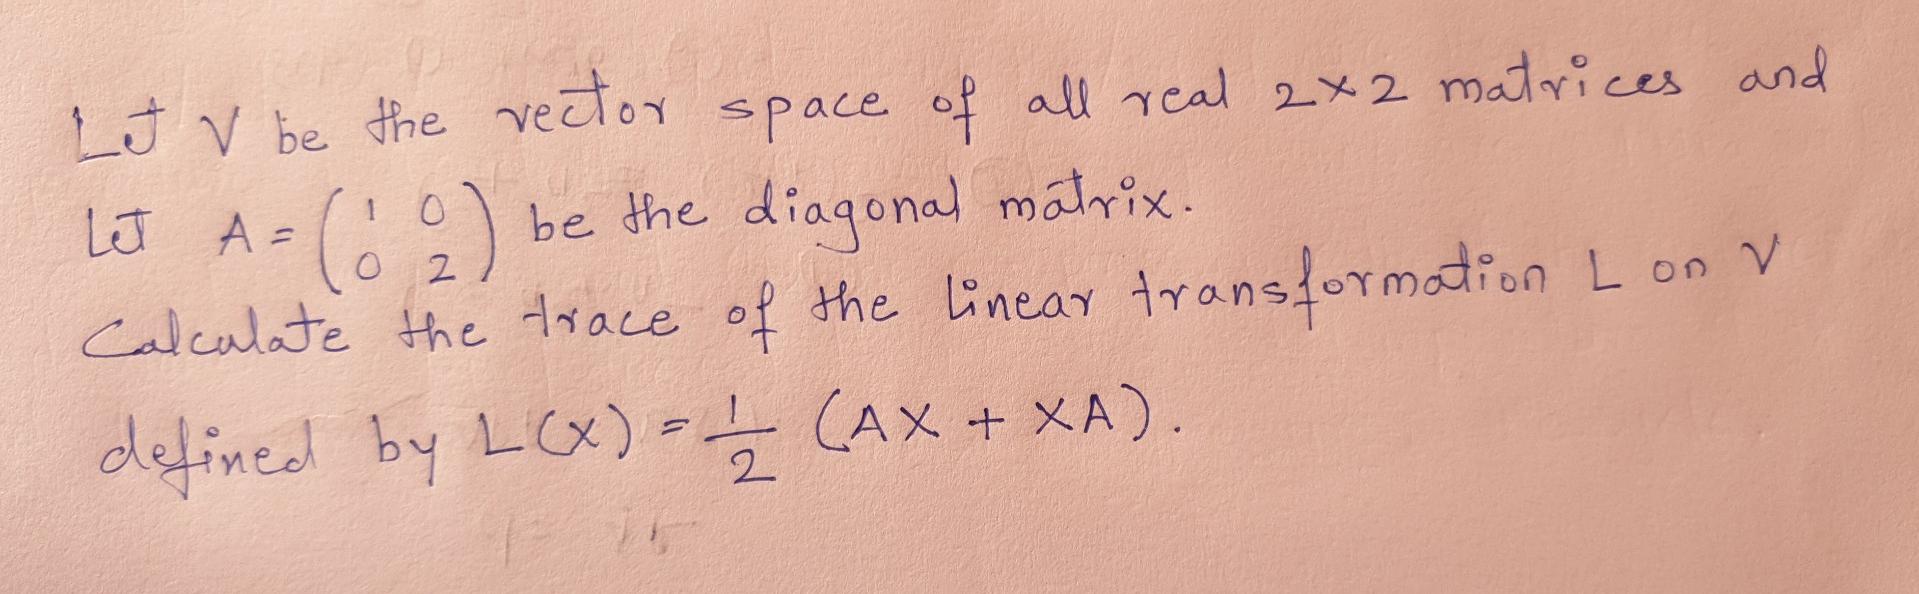 Let V be the vector space of all real 2×2 matrices and
Let A = (1 0
0 2) be the diagonal matrix.
Calculate the trace of the linear transformation L on V
defined by L(X) = 1/2 (AX + XA).